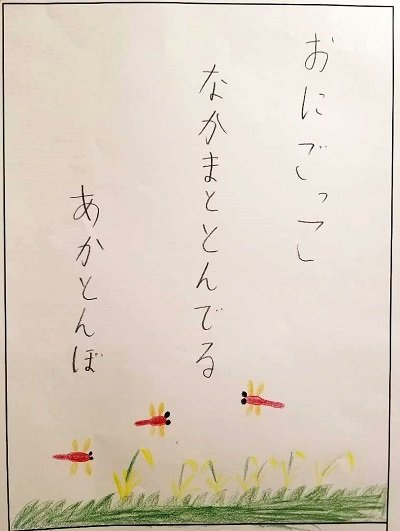 おにごっこ
なかまととんでる
あかとんぼ